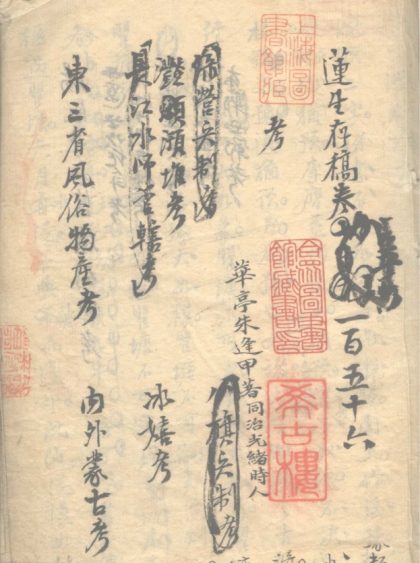 蓮生存稿卷
一百五十六
上海圖
書館
合眾圖書
館藏書印
希古樓
華亭朱逢甲著同治光緒時人
考
綠營兵制考
八旗兵制考
堆考
長江水師營轄考
冰嬉考
東三省風俗物產考
內外蒙古考